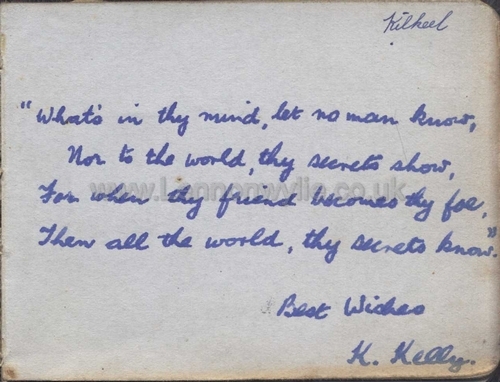 Kilkeel
"What's in thy mind, let no man know,
Nor to the world, thy secrets show,
For when thy friend becomes thy foe,
Then all the world, thy secrets know."
www.Lennonwylie.co.uk
Best Wishes
K. Kelly.